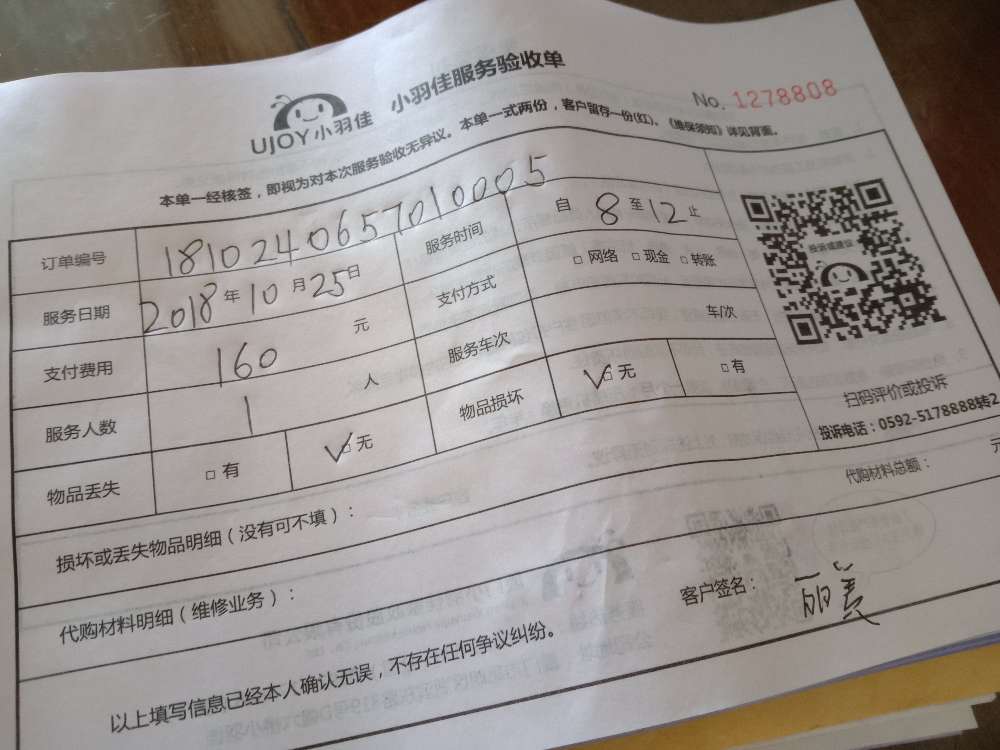 UJOY小羽佳 小羽佳服务验收单
No. 1278808
本单一经核签，即视为对本次服务验收无异议。本单一式两份，客户留存一份(红)。《维保须知》详见背面。
订单编号 1810240657010005
服务日期 2018年10月25日 服务时间 自8至12止
支付费用 160元 支付方式 □网络 □现金 □转账
服务人数 1人 服务车次 车/次
物品丢失 □有 ✓□无 物品损坏 ✓□无 □有
投诉或建议
扫码评价或投诉
投诉电话：0592-5178888转2
损坏或丢失物品明细（没有可不填）：
代购材料明细（维修业务）： 代购材料总额： 元
以上填写信息已经本人确认无误，不存在任何争议纠纷。 客户签名： 丽美